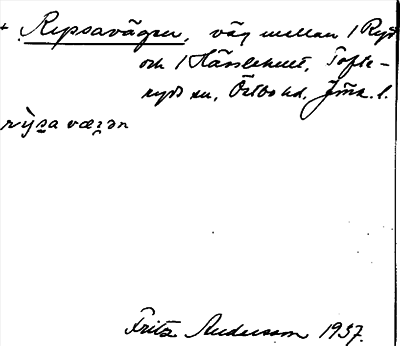 + Repsavägen, väg mellan 1 Ryd
och 1 Hässlehult, Tofte-
ryds sn, Östbo hd, Jönk. l.
rỳpsa væ̀gən
Fritz Andersson 1937.